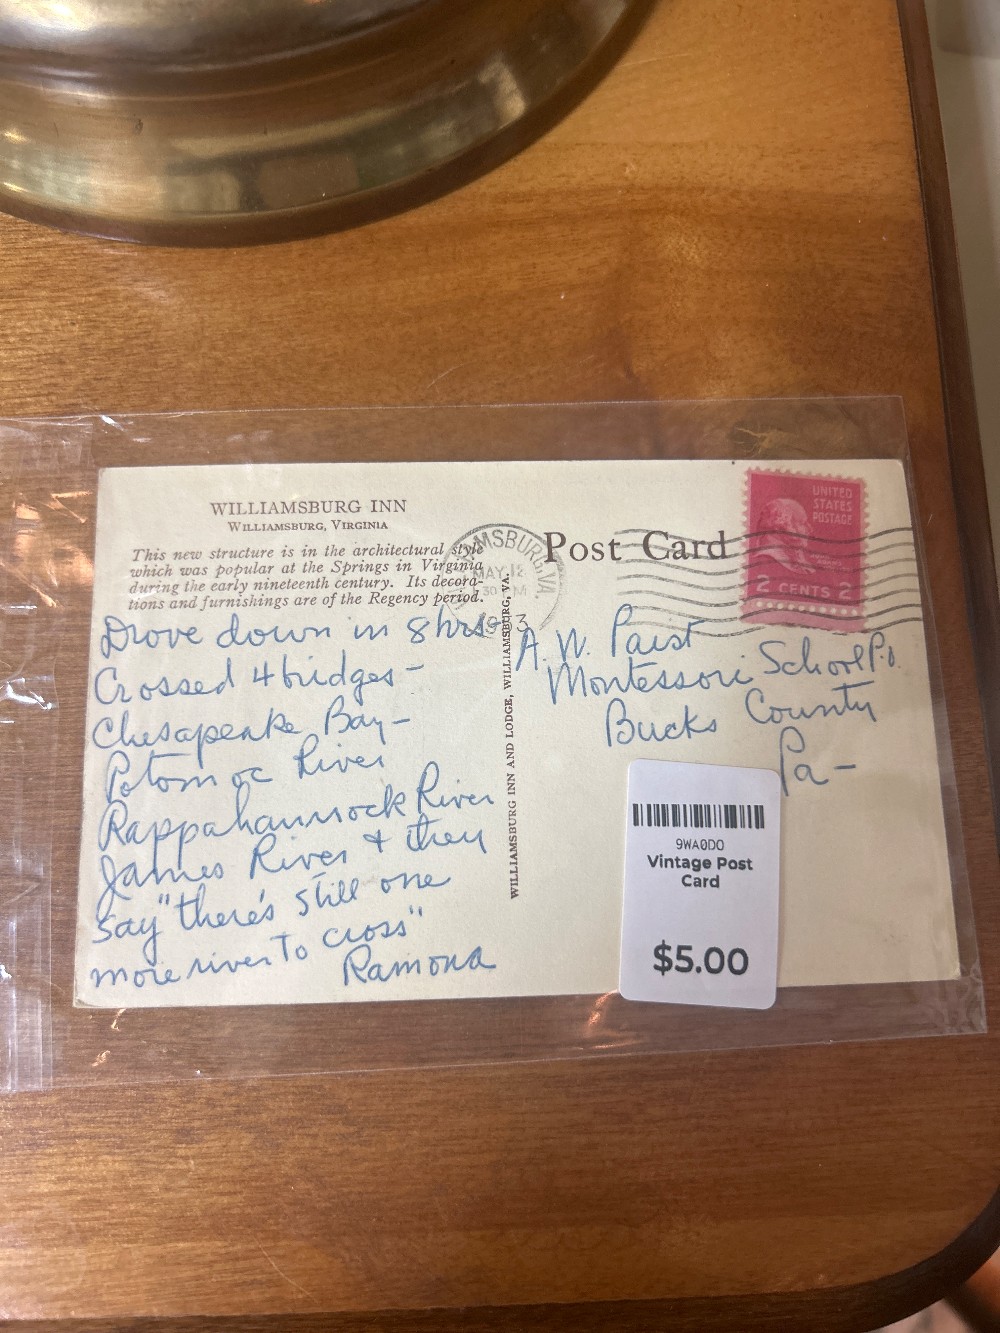 WILLIAMSBURG INN
WILLIAMSBURG, VIRGINIA
This new structure is in the architectural style
which was popular at the Springs in Virginia
during the early nineteenth century. Its decora-
tions and furnishings are of the Regency period.
Drove down in 8 hrs-
Crossed 4 bridges -
Chesapeake Bay -
Potomac River
Rappahannock River
James River & they
say "there's still one
more river to cross"
Ramona
WILLIAMSBURG INN AND LODGE, WILLIAMSBURG, VA.
MSBURG, VA.
MAY 12
30 PM
Post Card
UNITED
STATES
POSTAGE
2 CENTS 2
A. W. Paist
Montessori School P.O.
Bucks County
Pa -
9WA0DO
Vintage Post
Card
$5.00